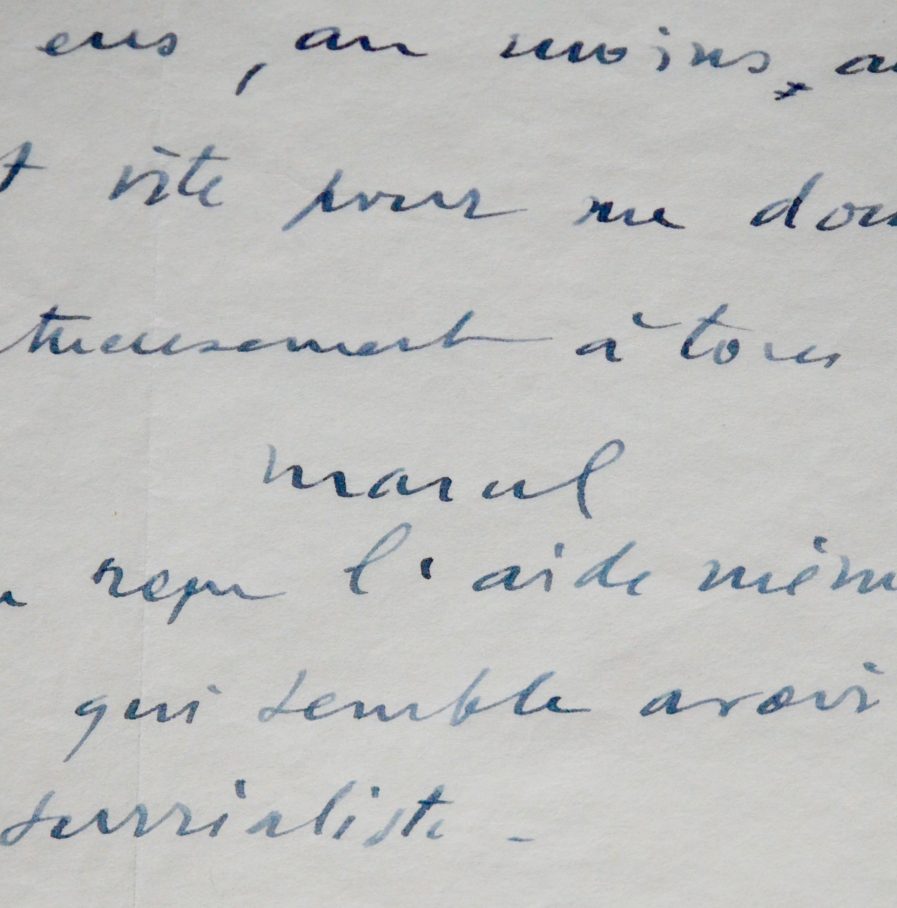 eus, au moins, au
t vite pour me don
tueusement à tous
Marcel
u reçu l'aide mém
qui semble avoir
surrialiste -